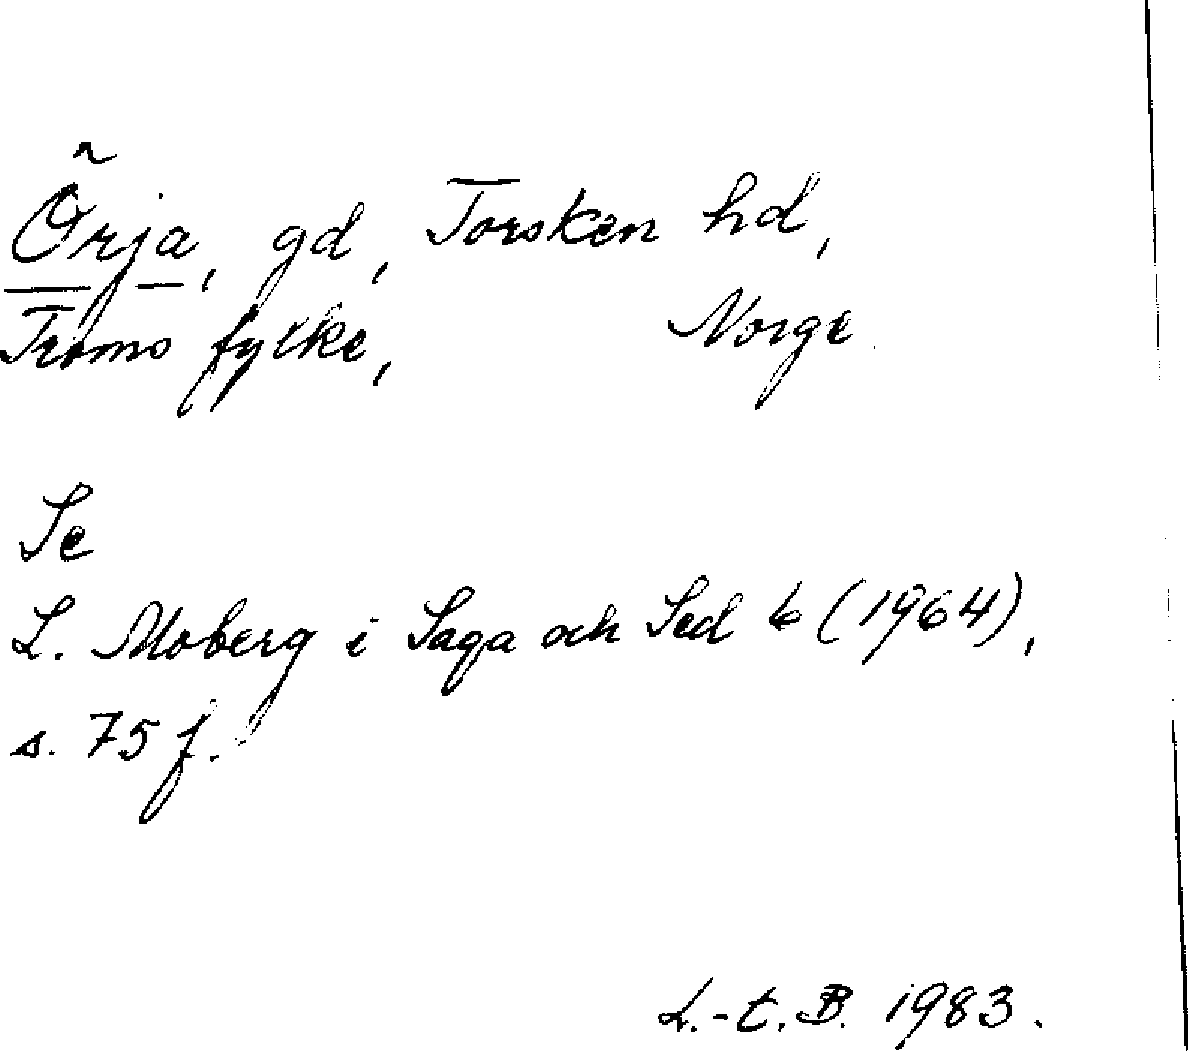 Örja, gd, Torsken hd,
Troms fylke, Norge
Se
L. Moberg i Saga och Sed 6 (1964),
s. 75 f.
L.-t. B. 1983.